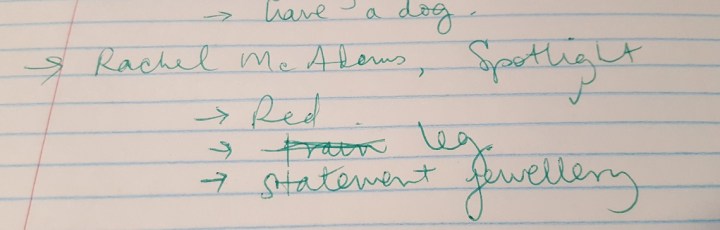 → have a dog.
→ Rachel McAdams, Spotlight
→ Red.
→ ~~train~~ leg.
→ statement jewellery